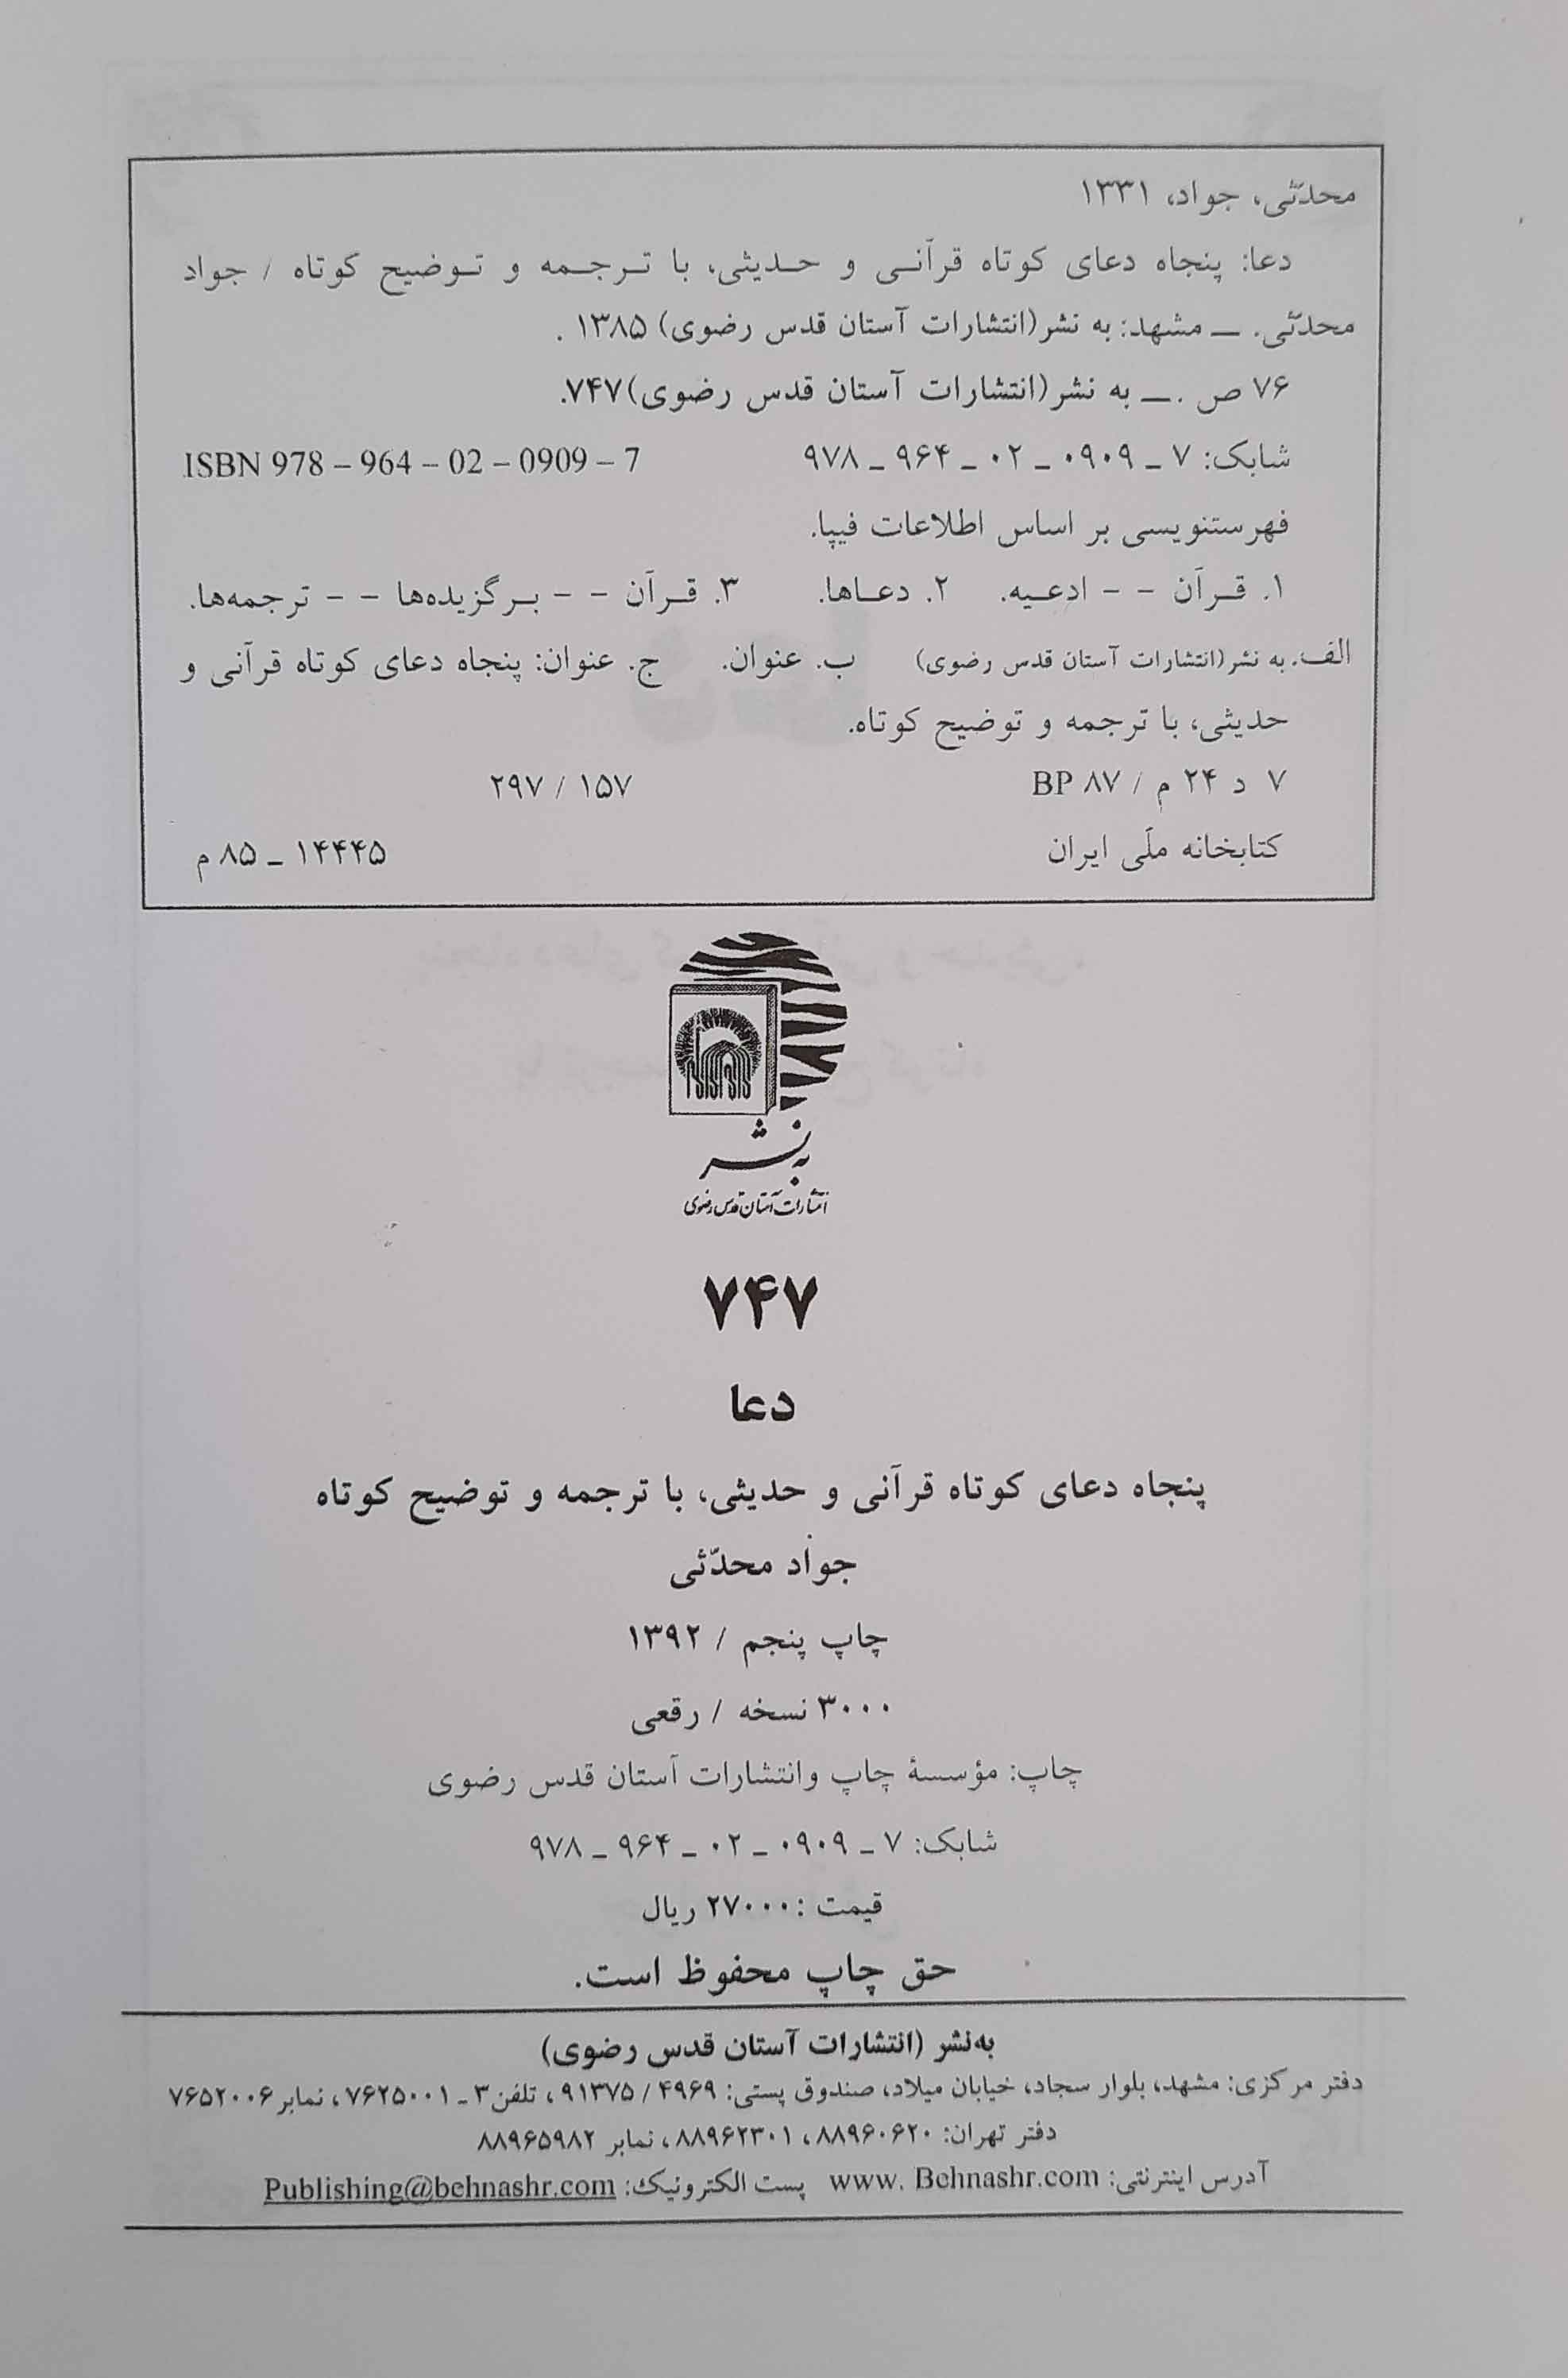 محدّثی، جواد، ۱۳۳۱
دعا: پنجاه دعای کوتاه قرآنی و حدیثی، با ترجمه و توضیح کوتاه / جواد
محدّثی. ـ مشهد: به نشر(انتشارات آستان قدس رضوی) ۱۳۸۵ .
۷۶ ص .ـ به نشر(انتشارات آستان قدس رضوی)۷۴۷.
شابک: ۷ ـ ۰۹۰۹ ـ ۰۲ ـ ۹۶۴ ـ ۹۷۸ ISBN 978 – 964 – 02 – 0909 – 7
فهرستنویسی بر اساس اطلاعات فیپا.
۱. قرآن - - ادعیه. ۲. دعاها. ۳. قرآن - - برگزیده‌ها - - ترجمه‌ها.
الف. به نشر(انتشارات آستان قدس رضوی) ب. عنوان. ج. عنوان: پنجاه دعای کوتاه قرآنی و
حدیثی، با ترجمه و توضیح کوتاه.
۷ د ۲۴ م / BP ۸۷ ۲۹۷ / ۱۵۷
کتابخانه ملّی ایران ۱۴۴۴۵ ـ ۸۵ م
به نشر
انتشارات آستان قدس رضوی
۷۴۷
دعا
پنجاه دعای کوتاه قرآنی و حدیثی، با ترجمه و توضیح کوتاه
جواد محدّثی
چاپ پنجم / ۱۳۹۲
۳۰۰۰ نسخه / رقعی
چاپ: مؤسسهٔ چاپ وانتشارات آستان قدس رضوی
شابک: ۷ ـ ۰۹۰۹ ـ ۰۲ ـ ۹۶۴ ـ ۹۷۸
قیمت :۲۷۰۰۰ ریال
حق چاپ محفوظ است.
به‌نشر (انتشارات آستان قدس رضوی)
دفتر مرکزی: مشهد، بلوار سجاد، خیابان میلاد، صندوق پستی: ۴۹۶۹ / ۹۱۳۷۵، تلفن۳ ـ ۷۶۲۵۰۰۱، نمابر ۷۶۵۲۰۰۶
دفتر تهران: ۸۸۹۶۰۶۲۰، ۸۸۹۶۲۳۰۱، نمابر ۸۸۹۶۵۹۸۲
آدرس اینترنتی: www. Behnashr.com پست الکترونیک: Publishing@behnashr.com